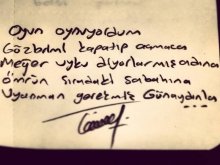 Oyun oynuyordum
Gözlerimi kapatıp açmaca
Meğer uyku diyorlarmış adına
Ömrün sıradaki sabahına
Uyanman gerekmiş Günaydınlar